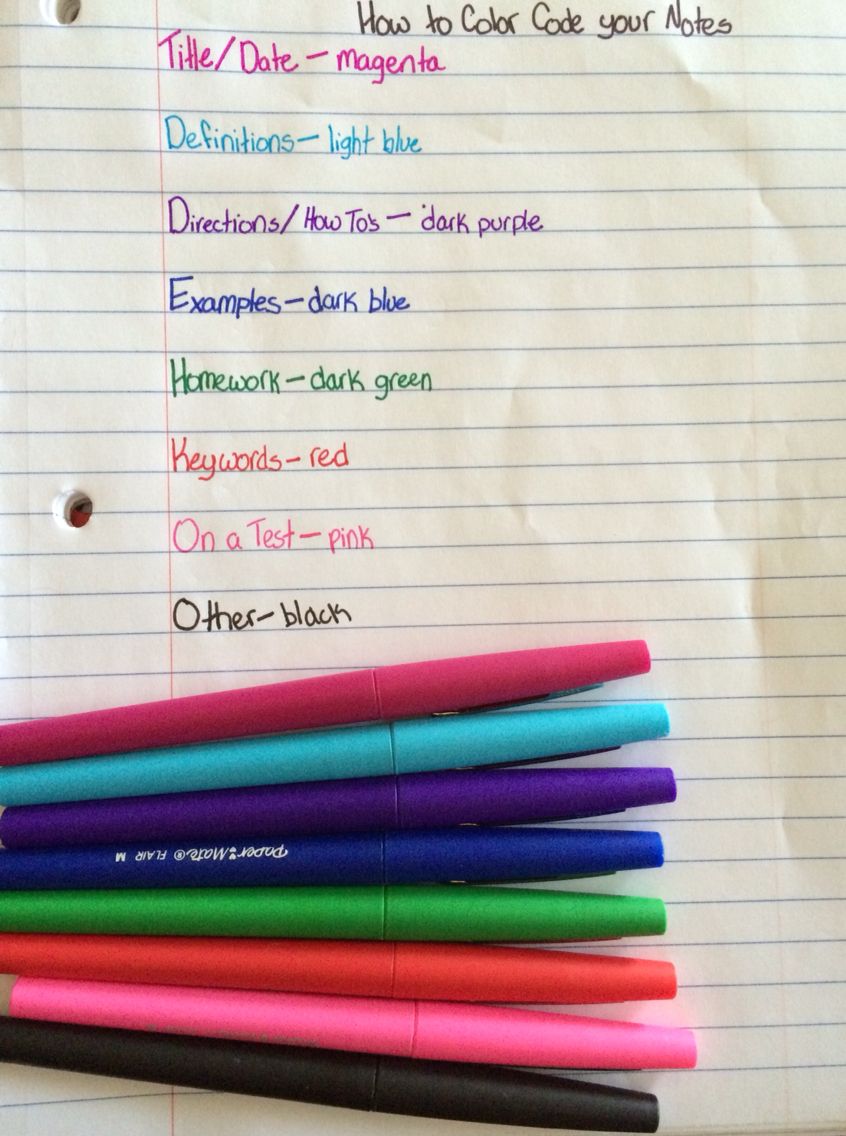 How to Color Code your Notes
Title/Date – magenta
Definitions – light blue
Directions/How To's – dark purple
Examples – dark blue
Homework – dark green
Keywords – red
On a Test – pink
Other – black
Paper Mate® FLAIR M